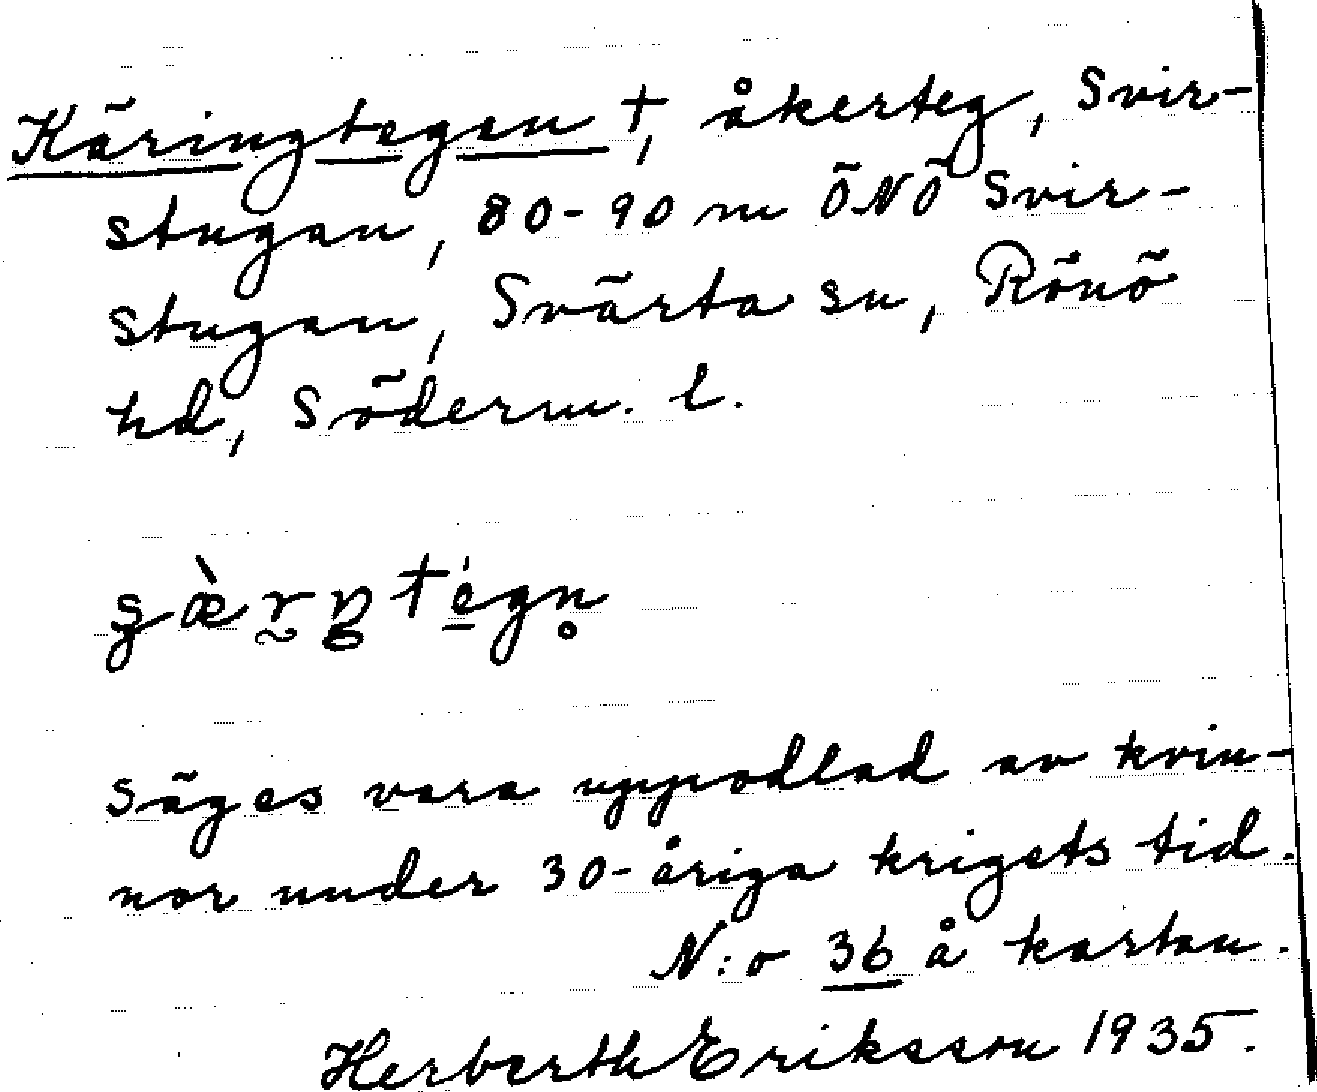 Käringtegen †, åkerteg, Svir-
stugan, 80-90 m ÖNÖ Svir-
stugan, Svärta sn, Rönö
hd, Söderm. l.
säges vara uppodlad av kvin-
nor under 30-åriga krigets tid.
N:o 36 å kartan.
Herberth Eriksson 1935.